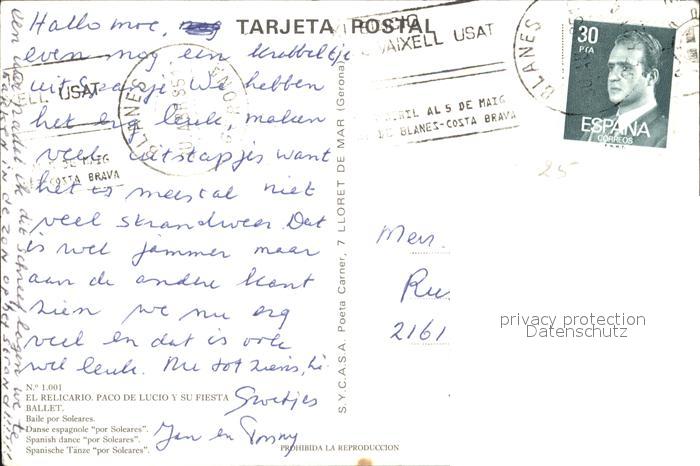 TARJETA POSTAL
Hallo moe,
even nog een krabbeltje
uit Spanje. We hebben
het erg leuk, maken
veel uitstapjes want
het is meestal niet
veel strandweer. Dat
is wel jammer maar
aan de andere kant
zien we nu erg
veel en dat is ook
wel leuk. Nu tot ziens,
Groetjes
Jan en
N.º 1.001
EL RELICARIO. PACO DE LUCIO Y SU FIESTA
BALLET.
Baile por Soleares.
Danse espagnole "por Soleares".
Spanish dance "por Soleares".
Spanische Tänze "por Soleares".
PROHIBIDA LA REPRODUCCION
S.Y.C.A.S.A. Poeta Carner, 7 LLORET DE MAR (Gerona)
VAIXELL USAT
AL 5 DE MAIG
DE BLANES-COSTA BRAVA
BLANES
30
PTA
ESPAÑA
CORREOS
LL USAT
BLANES
DE MAIG
COSTA BRAVA
25
2161
privacy protection
Datenschutz
dit schreef lagen we te
in de zon op het strand